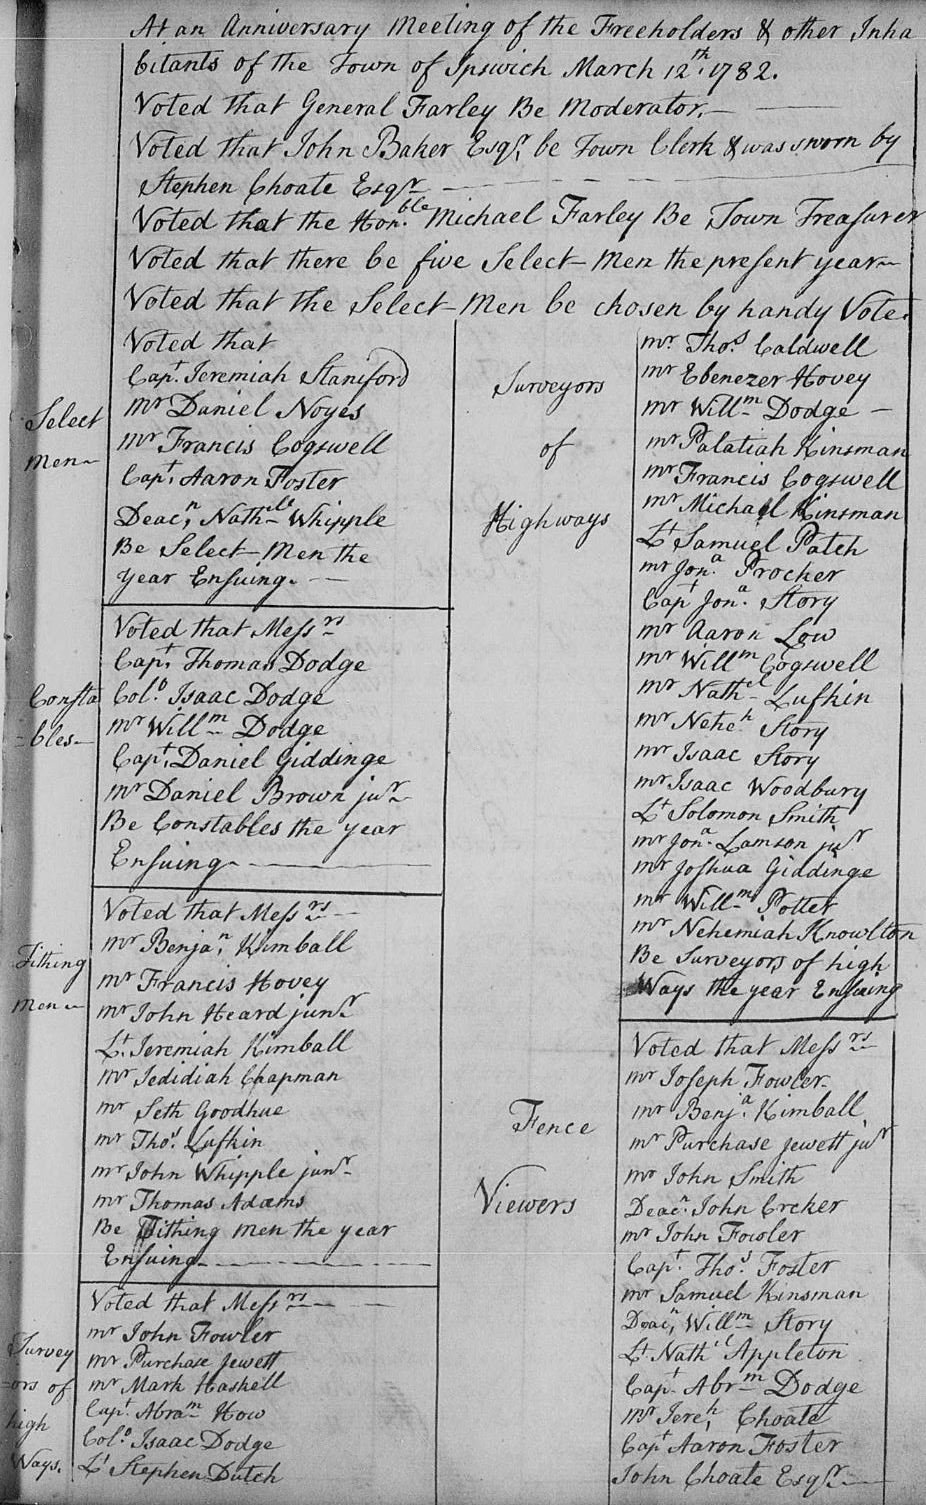 At an Anniversary Meeting of the Freeholders & other Inha
bitants of the Town of Ipswich March 12th. 1782.
Voted that General Farley Be Moderator.
Voted that John Baker Esqr. be Town Clerk & was sworn by
Stephen Choate Esqr
Voted that the Honble. Michael Farley Be Town Treasurer
Voted that there be five Select-Men the present year
Voted that the Select-Men be chosen by handy Vote.
Select
Men
Voted that
Capt. Jeremiah Staniford
Mr Daniel Noyes
Mr Francis Cogswell
Capt. Aaron Foster
Deacn. Nathle Whipple
Be Select-Men the
year Ensuing.
Consta
=bles
Voted that Messrs
Capt. Thomas Dodge
Colo. Isaac Dodge
Mr Willm Dodge
Capt. Daniel Giddinge
Mr Daniel Brown jur
Be Constables the year
Ensuing
Tithing
Men
Voted that Messrs
Mr Benjan. Kimball
Mr Francis Hovey
Mr John Heard junr
Lt. Jeremiah Kimball
Mr Jedidiah Chapman
Mr Seth Goodhue
Mr Thos. Lufkin
Mr John Whipple junr
Mr Thomas Adams
Be Tithing Men the year
Ensuing
Survey
=ors of
high
Ways.
Voted that Messrs
Mr John Fowler
Mr Purchase Jewett
Mr Mark Haskell
Capt. Abram How
Colo. Isaac Dodge
Lt Stephen Dutch
Surveyors
of
Highways
Mr Thos. Caldwell
Mr Ebenezer Hovey
Mr Willm Dodge
Mr Palatiah Kinsman
Mr Francis Cogswell
Mr Michael Kinsman
Lt Samuel Patch
Mr Jona. Procker
Capt Jona. Story
Mr Aaron Low
Mr Willm Cogswell
Mr Nathel Lufkin
Mr Neheh Story
Mr Isaac Story
Mr Isaac Woodbury
Lt Solomon Smith
Mr Jona. Lamson jur
Mr Joshua Giddinge
Mr Willm Potter
Mr Nehemiah Knowlton
Be Surveyors of high
Ways the year Ensuing
Fence
Viewers
Voted that Messrs
Mr Joseph Fowler
Mr Benja. Kimball
Mr Purchase Jewett jur
Mr John Smith
Deacn. John Crcker
Mr John Fowler
Capt. Thos. Foster
Mr Samuel Kinsman
Deacn, Willm Story
Lt Nathel Appleton
Capt. Abrm Dodge
Mr Jereh, Choate
Capt Aaron Foster
John Choate Esqr